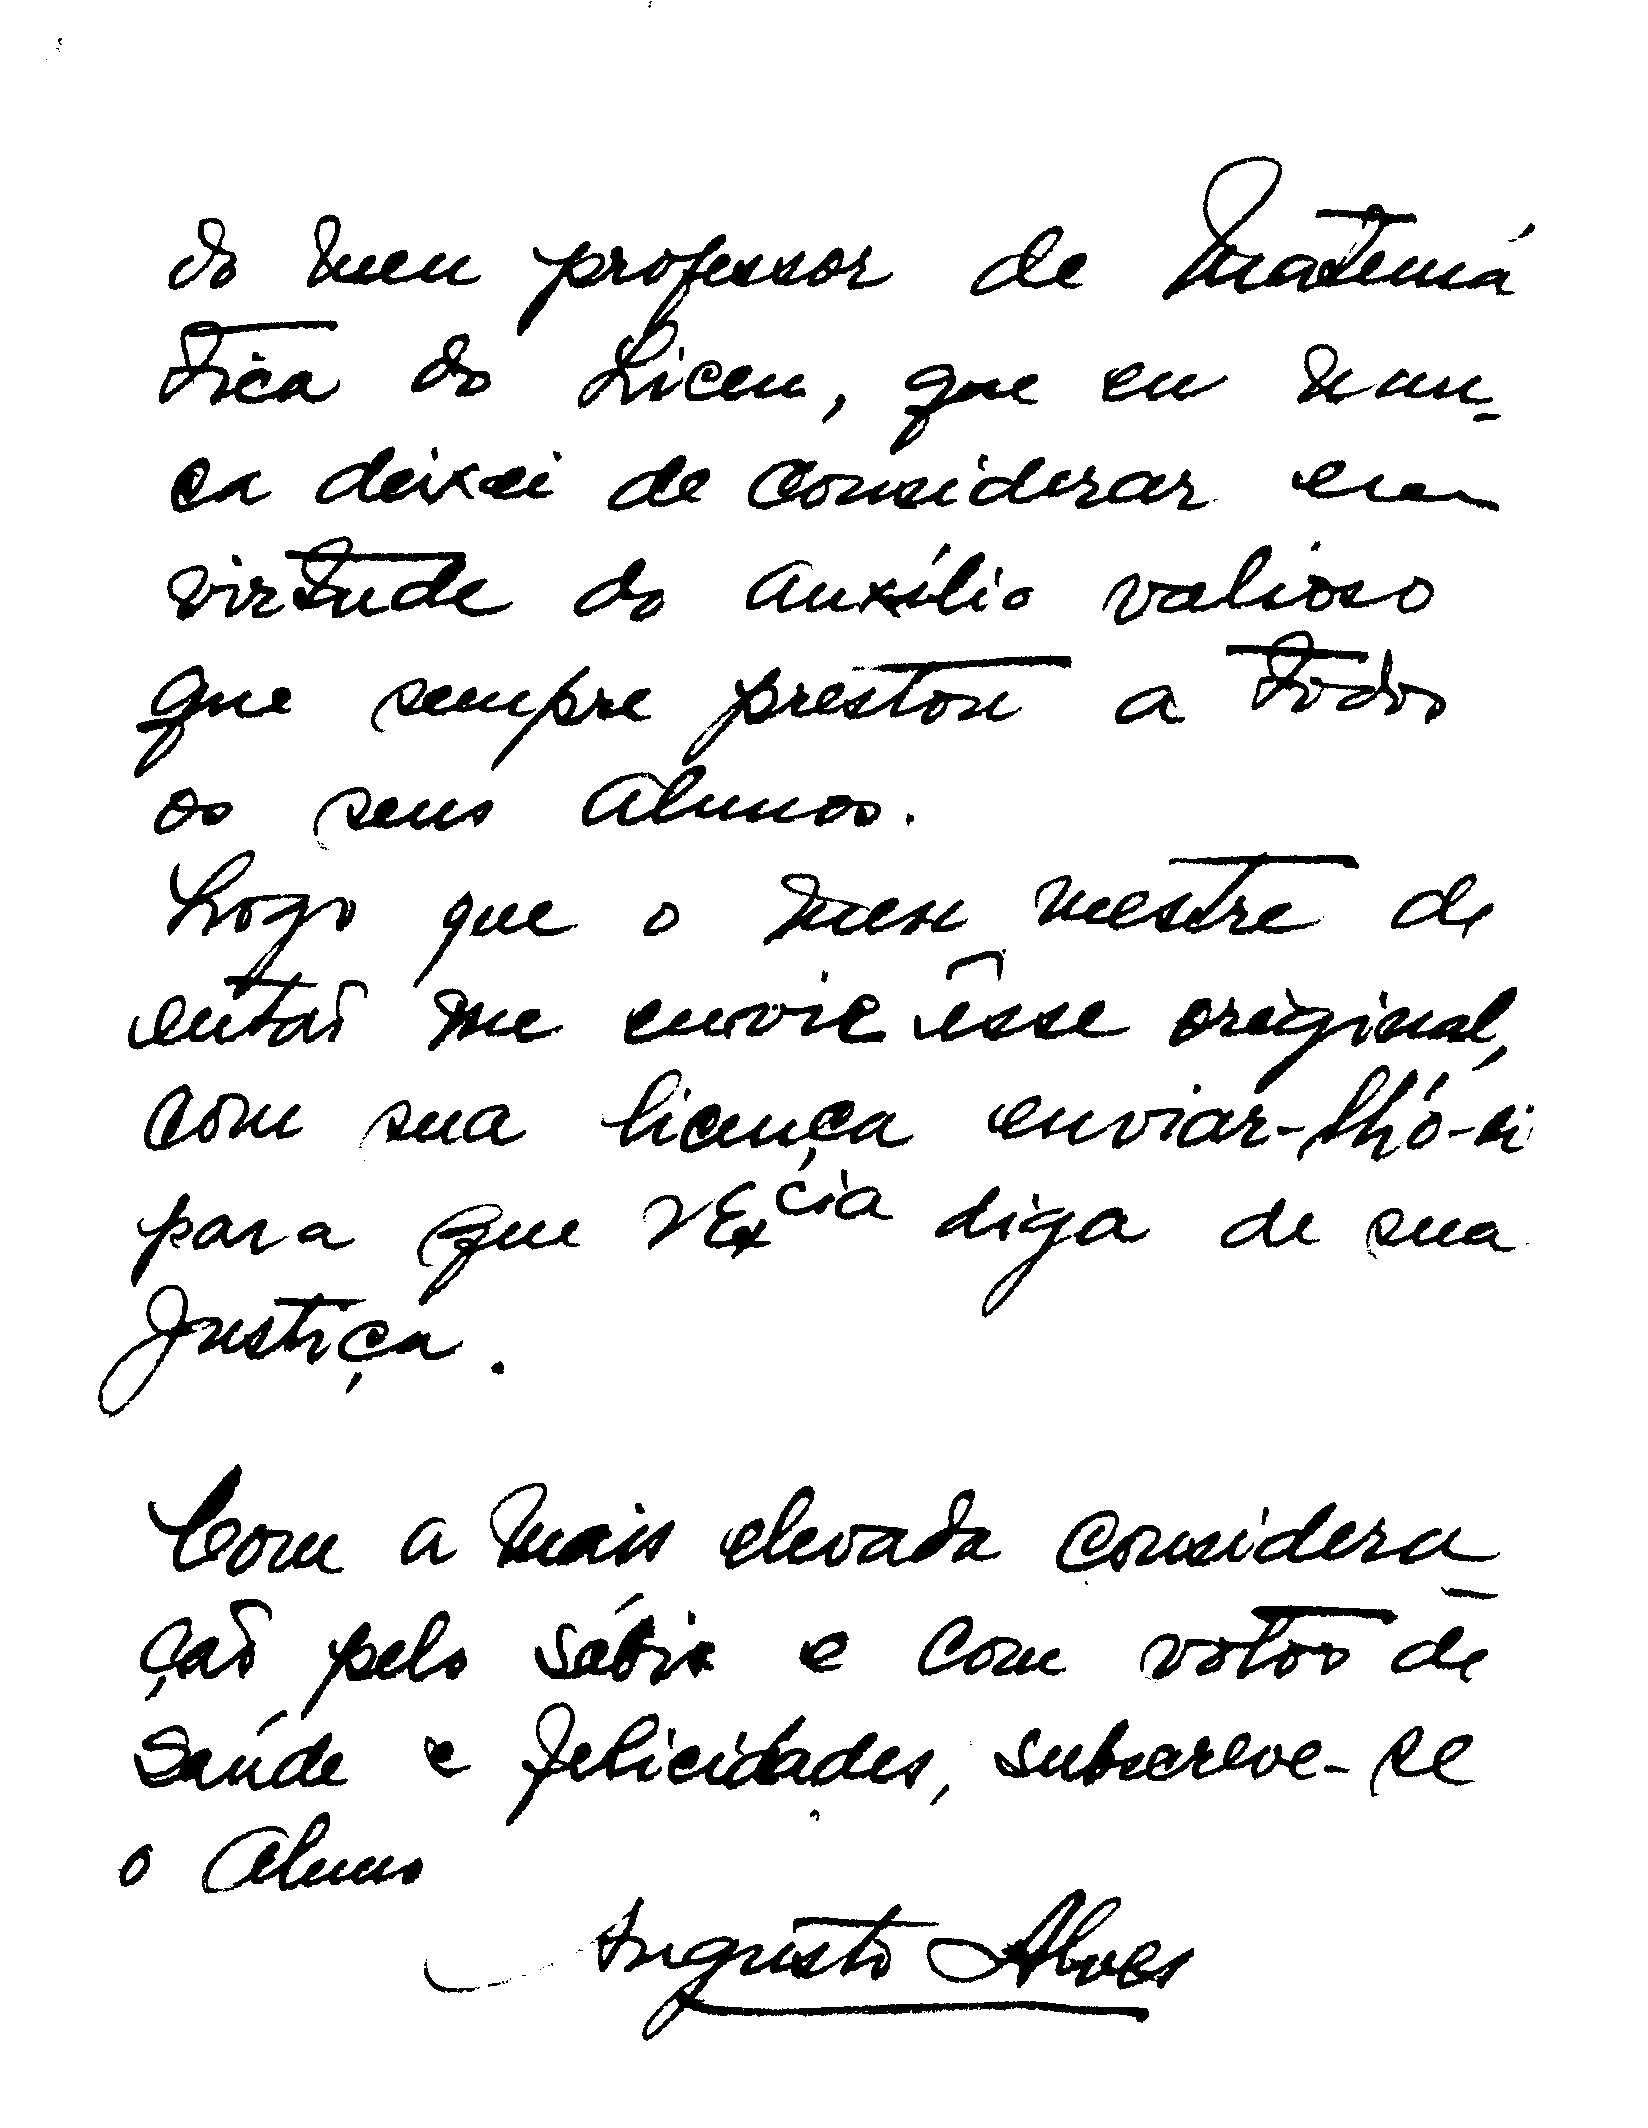 do meu professor de Matemá
tica do Liceu, que eu nun-
ca deixei de considerar em
virtude do auxílio valioso
que sempre prestou a todos
os seus alunos.
Logo que o meu mestre de
então me envie êsse original,
com sua licença enviar-lhó-ei
para que VExcia diga de sua
Justiça.
Com a mais elevada considera
ção pelo sábio e com votos de
Saúde e felicidades, subscreve-se
o Aluno
Augusto Alves